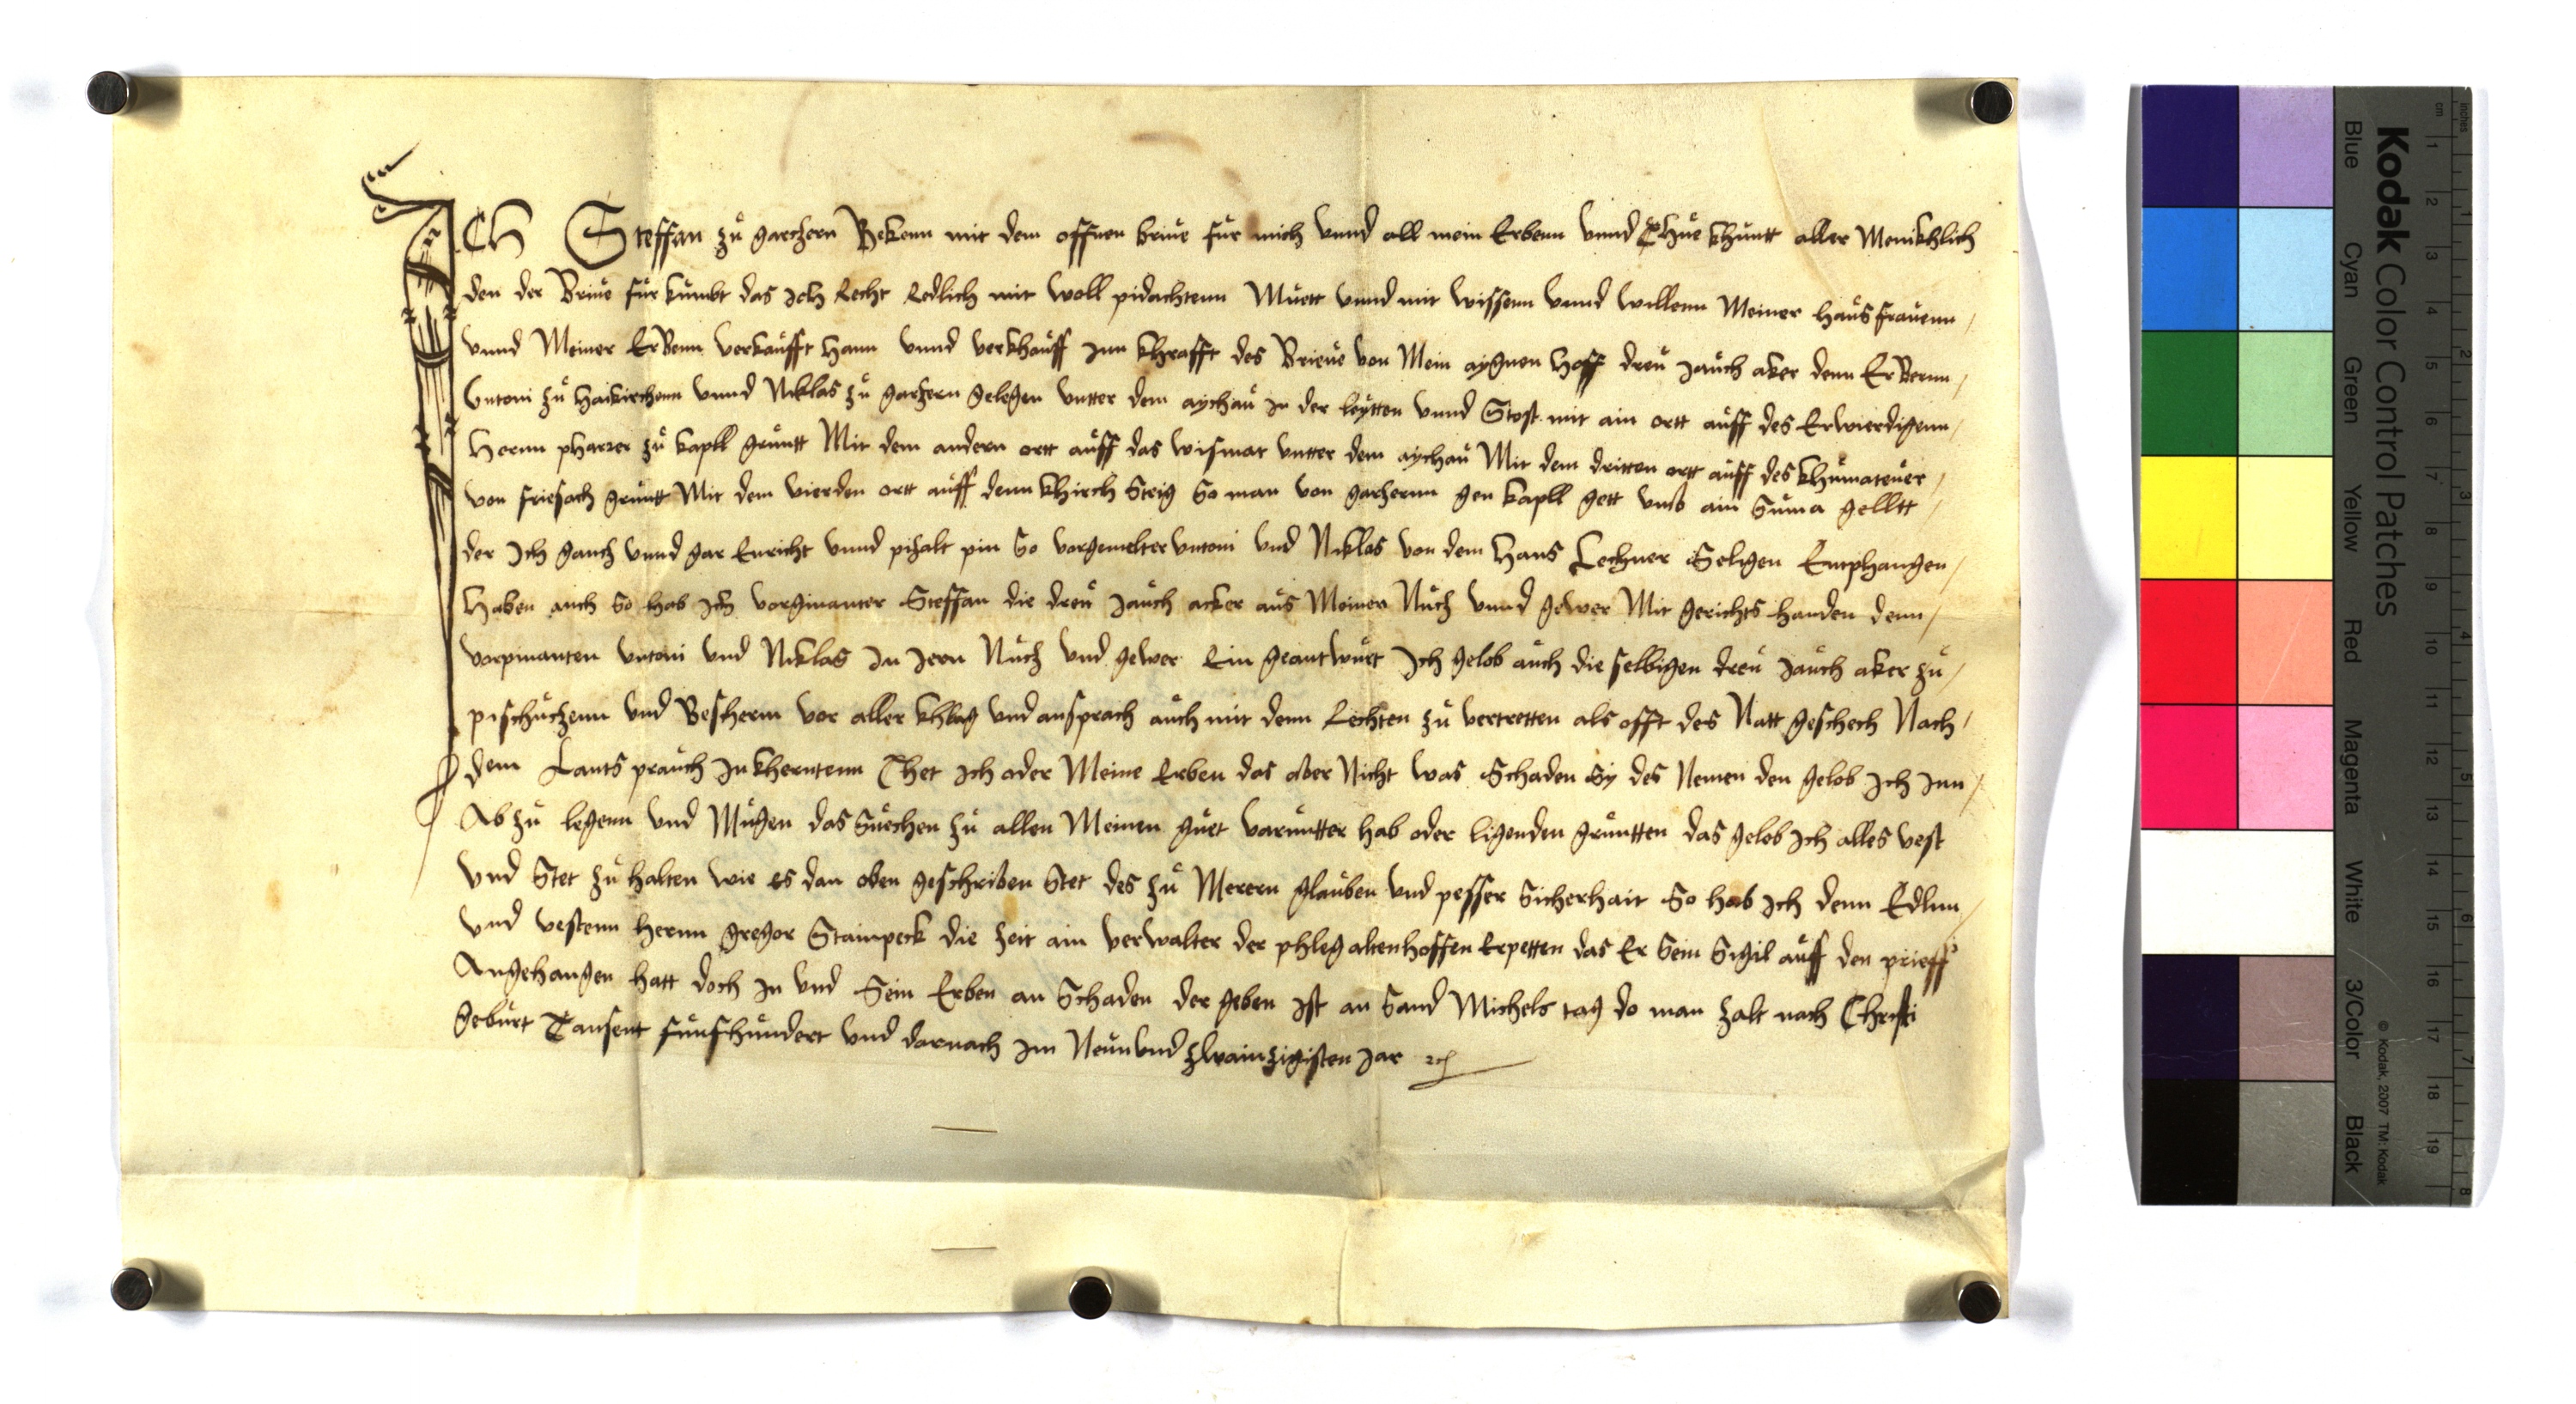 ICH Steffan zu garczern Bekenn mit dem offnen briue fur mich vnnd all mein Erbenn vnnd Thue khuntt aller Menikhlich
den der Briue fur kumbt das ich Recht Redlich mit woll pidachtenn Muett vnnd mit wissenn vnnd willenn Meiner hausfrauenn /
vnnd Meiner ErBenn verkaufft hann vnnd verkhauff Jnn khrafft des Brieue von Mein aygnen hoff dreu Jauch aker denn ErBernn /
Vntoni zu haikirchenn vnnd Niklas zu garzern gelegen vntter dem aychau in der leytten vnnd Stost mit ain ortt auff des Erwierdigenn /
Hernn pharrer zu kapll gruntt Mit dem andern ortt auff das wismat vntter dem aychau Mit dem dritten ortt auff des khumateuer /
von friesach gruntt Mit dem vierden ortt auff denn khirch Steig So man von garzernn gen kapll gett vmb ain Suma gelltt /
der Ich gancz vnnd gar Enricht vnnd pizalt pin So vorgemelter Vntoni vnd Niklas von dem Hans Lechner Seligen Emphangen /
Haben auch So hab Ich vorginanter Steffan die dreu Jauch acker aus Meiner Nucz vnnd gewer Mit gerichts handen denn /
vorpinanten Vntoni vnd Niklas Jn Jern Nucz vnd gewer Ein geantwurt Ich gelob auch die selbigen dreu Jauch aker zu /
pischuczenn vnd Beschernn vor aller khlag vnd ansprach auch mit denn Rechten zu vertretten als offt des Natt geschech Nach /
dem Lants prauch Jn kherntenn Thet Ich oder Meine Erben das aber Nicht was Schaden Sy des Nemen den gelob Ich Jnn /
Ab zu legenn vnd Mugen das Suechen zu allen Meinen guet varuntter hab oder ligenden gruntten das gelob Ich alles vest
vnd Stet zu halten wie es dan oben geschriben Stet des zu Merern glauben vnd pesser Sicherhait So hab Ich denn Edlnn /
vnd vestenn hernn gregor Stainpeck die zeit ain verwalter der phleg altenhoffen Erpetten das Er Sein Sigil auff den prieff
Angehangen hatt doch Jn vnd Sein Erben an Schaden der geben Ist an Sand Michels tag do man zalt nach Christi
geburt Tausent funfhundert vnd darnach Jm Neunvnd zwainzigisten Jar
Kodak Color Control Patches
Blue Cyan Green Yellow Red Magenta White 3/Color Black
© Kodak, 2007 TM: Kodak
cm 1 2 3 4 5 6 7 8 9 10 11 12 13 14 15 16 17 18 19
inches 1 2 3 4 5 6 7 8